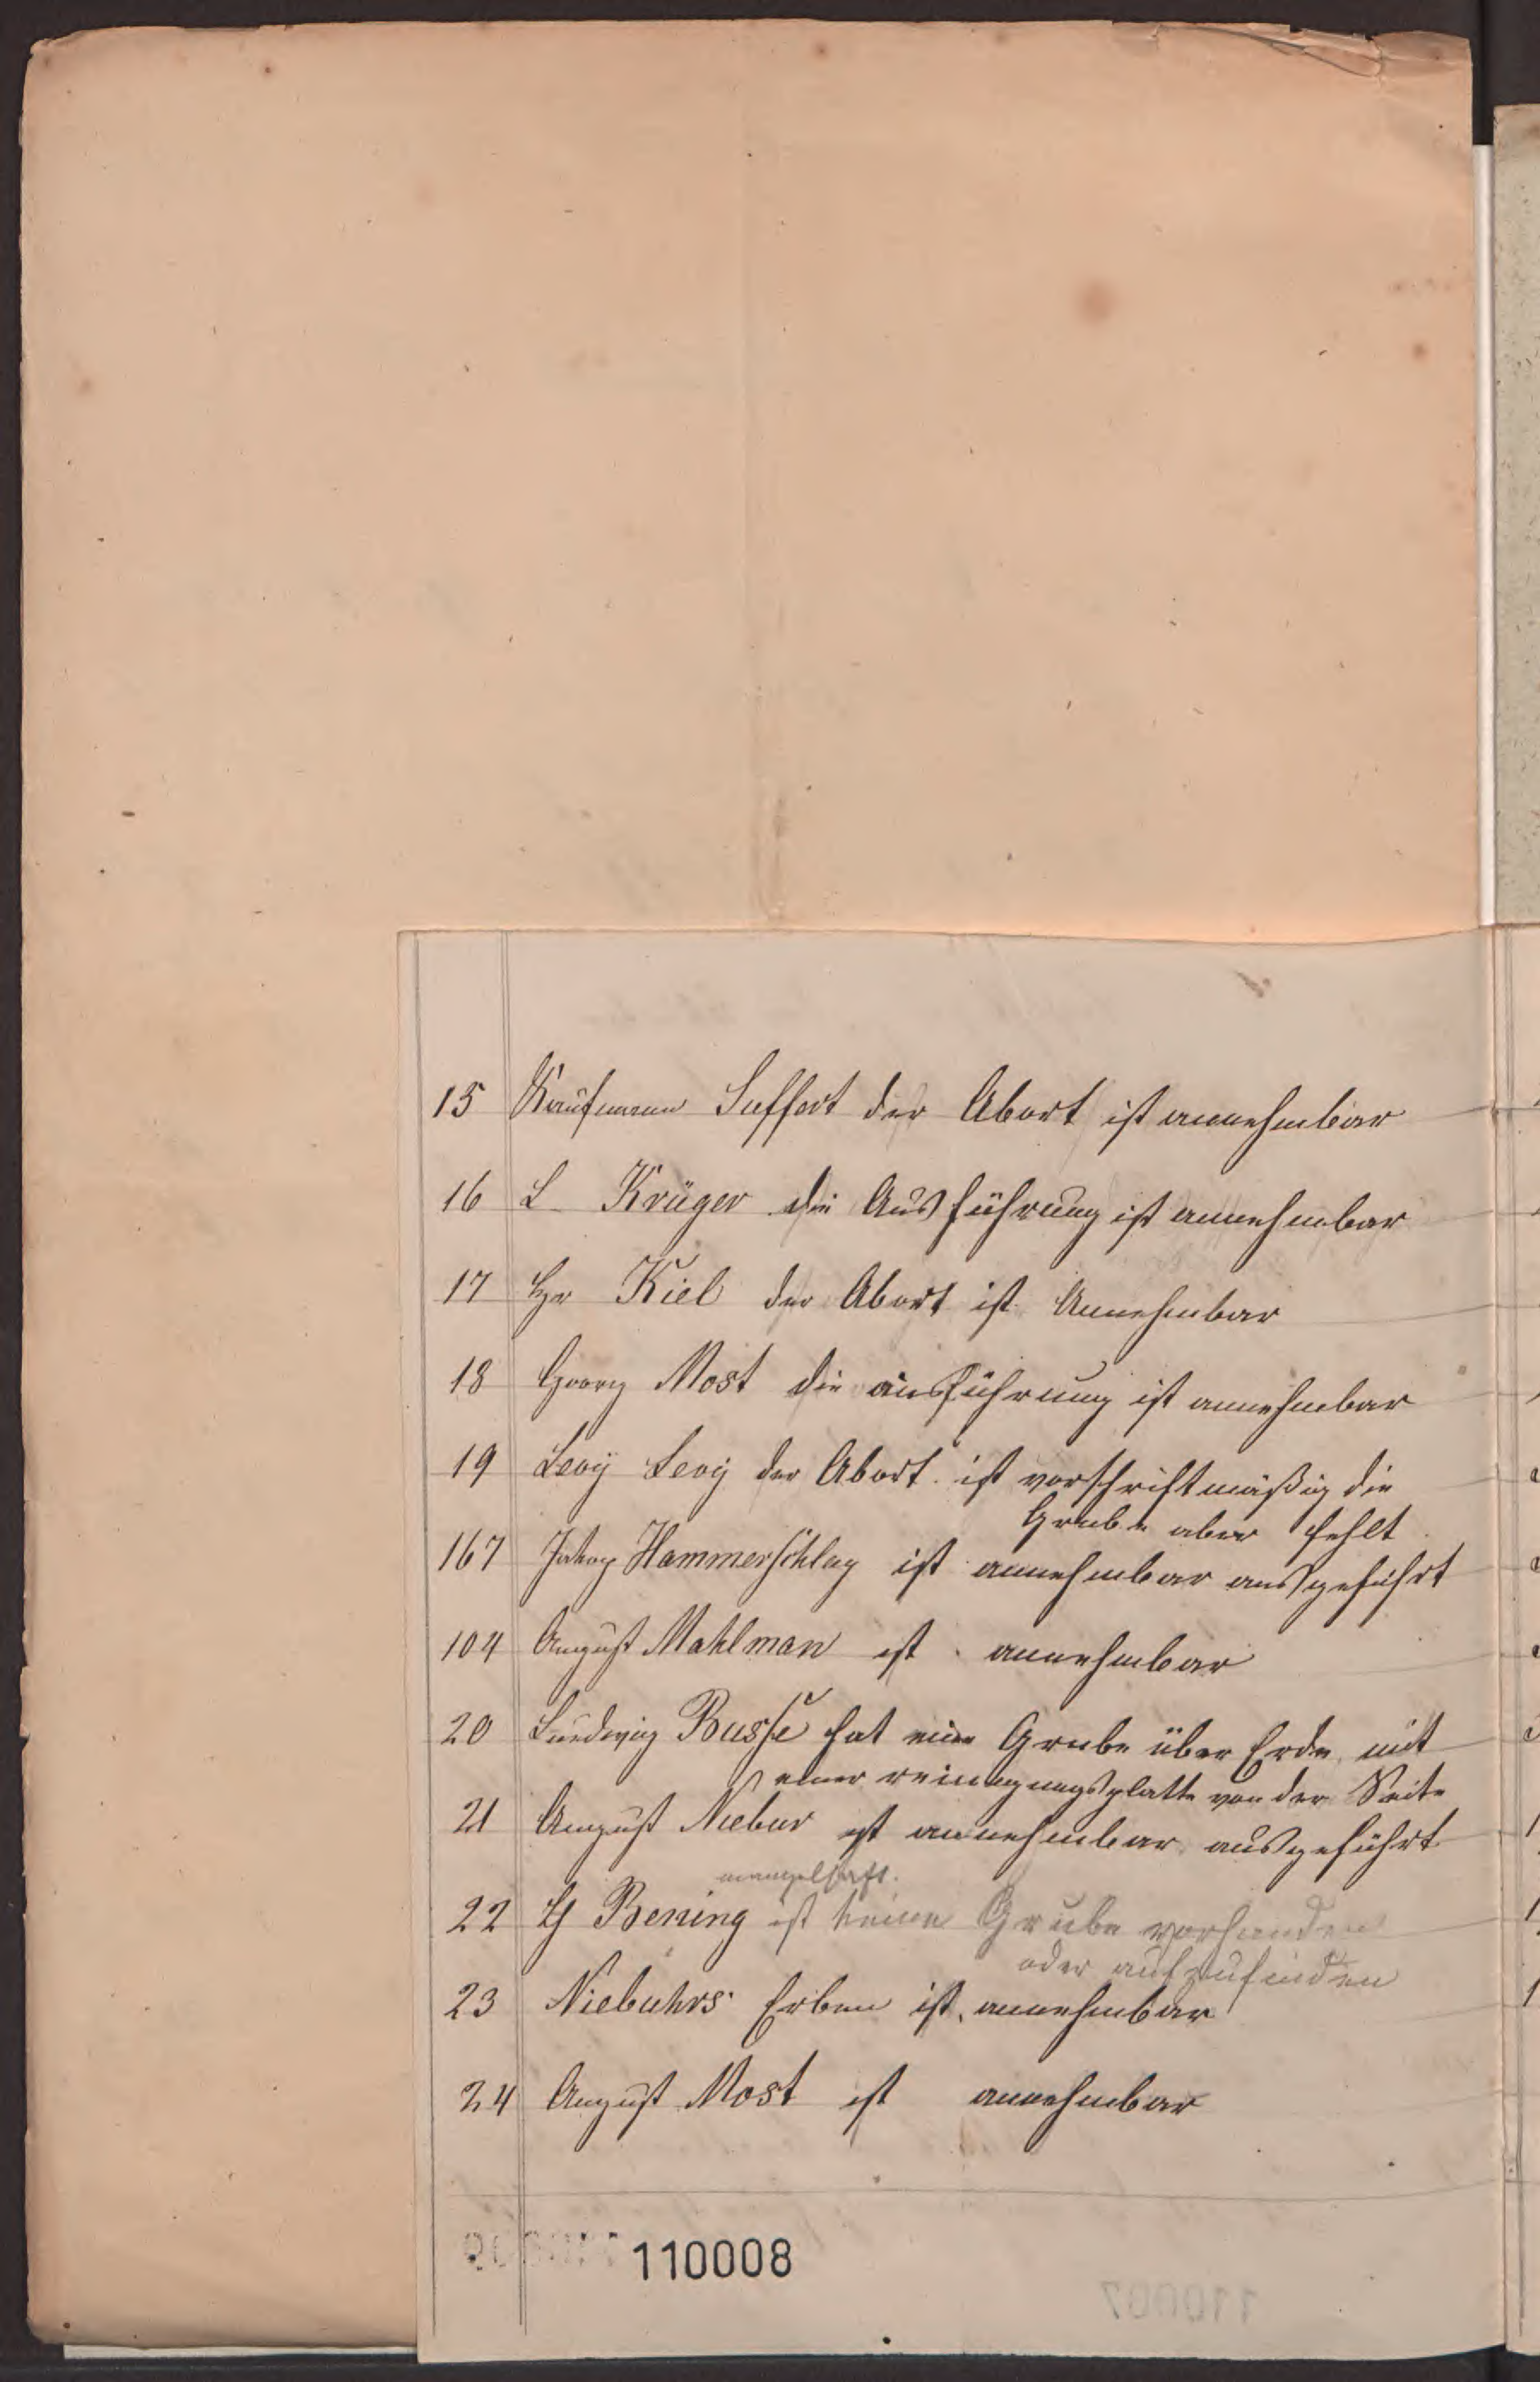 15 Kaufmann Seffert der Abort ist annehmbar
16 L Krüger die Ausführung ist annehmbar
17 Hr Kiel der Abort ist Annehmbar
18 Georg Most die ausführung ist annehmbar
19 Levÿ Levÿ der Abort ist vorschriftmäßig die
Grube aber fehlt
167 Hammerschlag ist annehmbar ausgeführt
104 August Mahlman ist annehmbar
20 Ludwig Busse hat eine Grube über Erde mit
einer reinigungsplatte von der Seite
21 August Niebur ist annehmbar ausgeführt
mangelhaft.
22 H Bening ist keine Grube vorhanden
oder aufzufinden
23 Niebuhrs Erben ist annehmbar
24 August Most ist annehmbar
110008
110007